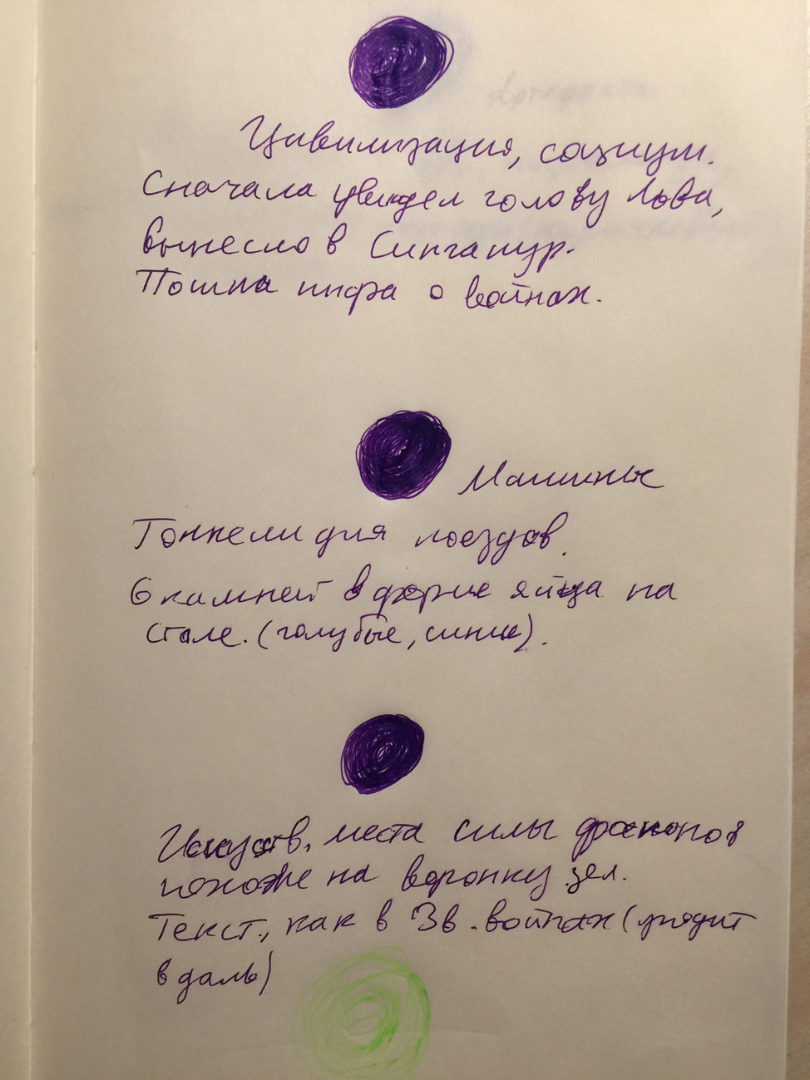 Цивилизация, социум.
Сначала увидел голову льва,
вынесло в Сингапур.
Пошла инфа о войнах.
Машины
Тоннели для поездов.
6 камней в форме яйца на
столе. (голубые, синие).
Искуств. места силы драконов
похоже на воронку зел.
Текст, как в Зв. войнах (уходит
в даль)